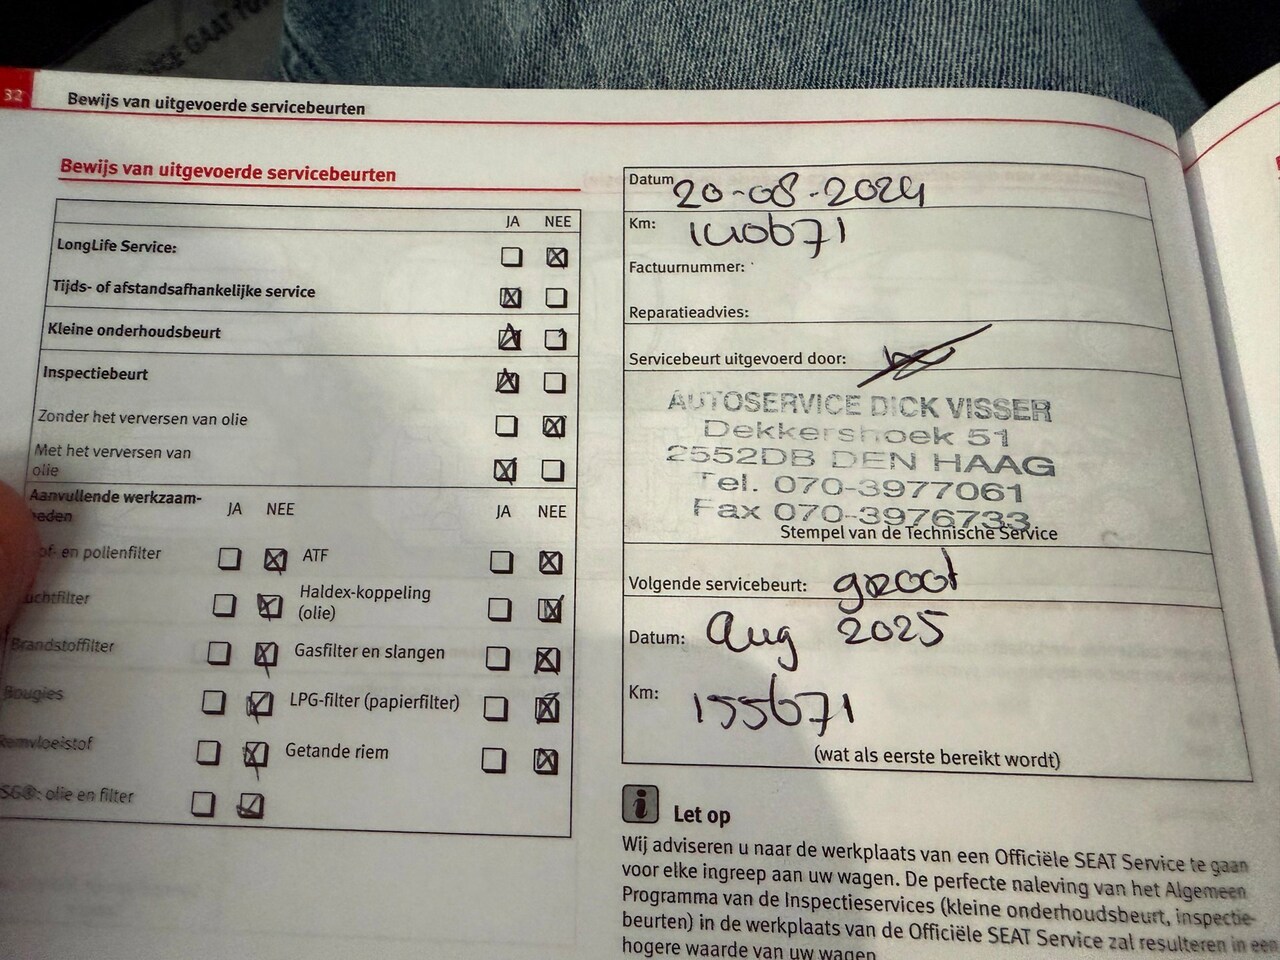 32
Bewijs van uitgevoerde servicebeurten
Bewijs van uitgevoerde servicebeurten
JA NEE
LongLife Service:
Tijds- of afstandsafhankelijke service
Kleine onderhoudsbeurt
Inspectiebeurt
Zonder het verversen van olie
Met het verversen van
olie
Aanvullende werkzaam-
heden
JA NEE
JA NEE
of- en pollenfilter
ATF
uchtfilter
Haldex-koppeling
(olie)
Brandstoffilter
Gasfilter en slangen
Bougies
LPG-filter (papierfilter)
Remvloeistof
Getande riem
SG®: olie en filter
Datum 20-08-2024
Km: 140671
Factuurnummer:
Reparatieadvies:
Servicebeurt uitgevoerd door:
AUTOSERVICE DICK VISSER
Dekkershoek 51
2552DB DEN HAAG
Tel. 070-3977061
Fax 070-3976733
Stempel van de Technische Service
Volgende servicebeurt: groot
Datum: Aug 2025
Km: 155671
(wat als eerste bereikt wordt)
Let op
Wij adviseren u naar de werkplaats van een Officiële SEAT Service te gaan
voor elke ingreep aan uw wagen. De perfecte naleving van het Algemeen
Programma van de Inspectieservices (kleine onderhoudsbeurt, inspectie-
beurten) in de werkplaats van de Officiële SEAT Service zal resulteren in een
hogere waarde van uw wagen